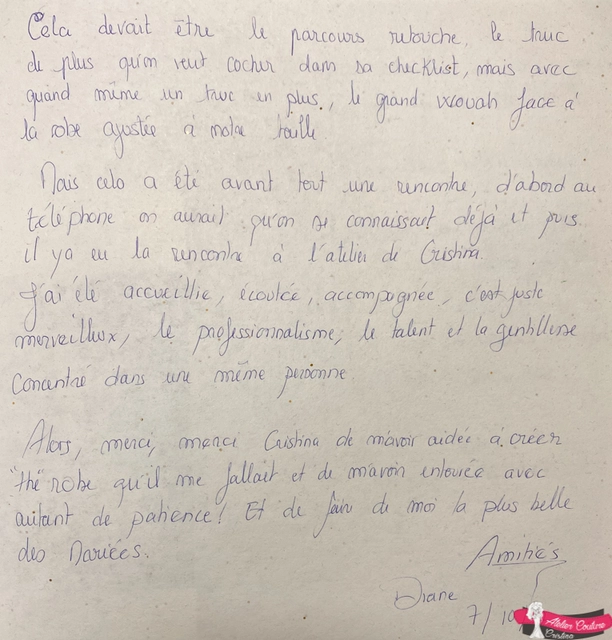 Cela devait être le parcours retouche, le truc
de plus qu'on veut cocher dans sa checklist, mais avec
quand même un truc en plus, le grand wouah face à
la robe ajustée à notre taille
Mais cela a été avant tout une rencontre, d'abord au
téléphone on aurait qu'on se connaissait déjà et puis
il y a eu la rencontre à l'atelier de Cristina.
J'ai été accueillie, écoutée, accompagnée, c'est juste
merveilleux, le professionnalisme, le talent et la gentillesse
concentré dans une même personne
Alors, merci, merci Cristina de m'avoir aidée à créer
"thé robe qu'il me fallait et de m'avoir entourée avec
autant de patience! Et de faire de moi la plus belle
des Mariées.
Amitiés
Diane
7/10
Atelier Couture
Cristina